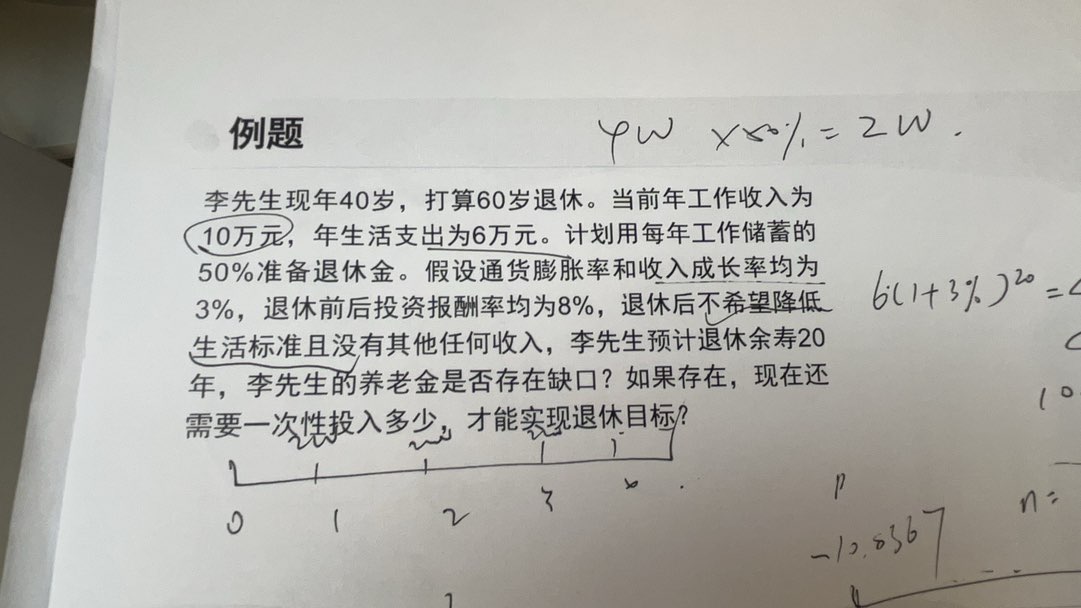 例题
4W ×50% = 2W .
李先生现年40岁，打算60岁退休。当前年工作收入为
10万元，年生活支出为6万元。计划用每年工作储蓄的
50%准备退休金。假设通货膨胀率和收入成长率均为
3%，退休前后投资报酬率均为8%，退休后不希望降低
生活标准且没有其他任何收入，李先生预计退休余寿20
年，李先生的养老金是否存在缺口？如果存在，现在还
需要一次性投入多少，才能实现退休目标？
6(1+3%)²⁰ =
10
0 1 2 3
n=
-10.8367